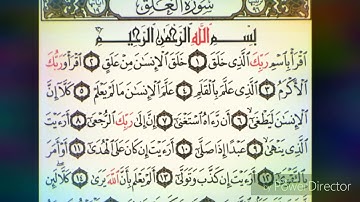 سُورَةُ الْعَلَقِ
بِسْمِ اللَّهِ الرَّحْمَٰنِ الرَّحِيمِ
اقْرَأْ بِاسْمِ رَبِّكَ الَّذِي خَلَقَ ١ خَلَقَ الْإِنسَٰنَ مِنْ عَلَقٍ ٢ اقْرَأْ وَرَبُّكَ
الْأَكْرَمُ ٣ الَّذِي عَلَّمَ بِالْقَلَمِ ٤ عَلَّمَ الْإِنسَٰنَ مَا لَمْ يَعْلَمْ ٥ كَلَّا إِنَّ
الْإِنسَٰنَ لَيَطْغَىٰ ٦ أَن رَّءَاهُ اسْتَغْنَىٰ ٧ إِنَّ إِلَىٰ رَبِّكَ الرُّجْعَىٰ ٨ أَرَءَيْتَ
الَّذِي يَنْهَىٰ ٩ عَبْدًا إِذَا صَلَّىٰ ١٠ أَرَءَيْتَ إِن كَانَ عَلَى الْهُدَىٰ ١١ أَوْ أَمَرَ
بِالتَّقْوَىٰ ١٢ أَرَءَيْتَ إِن كَذَّبَ وَتَوَلَّىٰ ١٣ أَلَمْ يَعْلَم بِأَنَّ اللَّهَ يَرَىٰ ١٤ كَلَّا لَئِن
PowerDirector